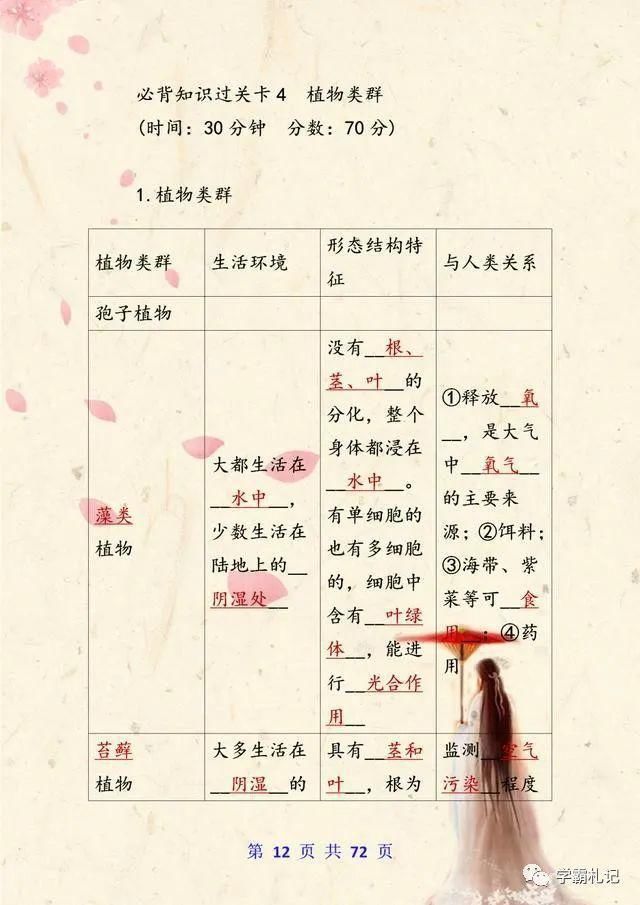 必背知识过关卡4 植物类群
(时间：30分钟 分数：70分)
1.植物类群
植物类群
生活环境
形态结构特
征
与人类关系
孢子植物
藻类
植物
大都生活在
__水中__，
少数生活在
陆地上的__
阴湿处__
没有__根、
茎、叶__的
分化，整个
身体都浸在
__水中__。
有单细胞的
也有多细胞
的，细胞中
含有__叶绿
体__，能进
行__光合作
用__
①释放__氧
__，是大气
中__氧气__
的主要来
源；②饵料；
③海带、紫
菜等可__食
用__；④药
用
苔藓
植物
大多生活在
__阴湿__的
具有__茎和
叶__，根为
监测__空气
污染__程度
第 12 页 共 72 页
学霸札记